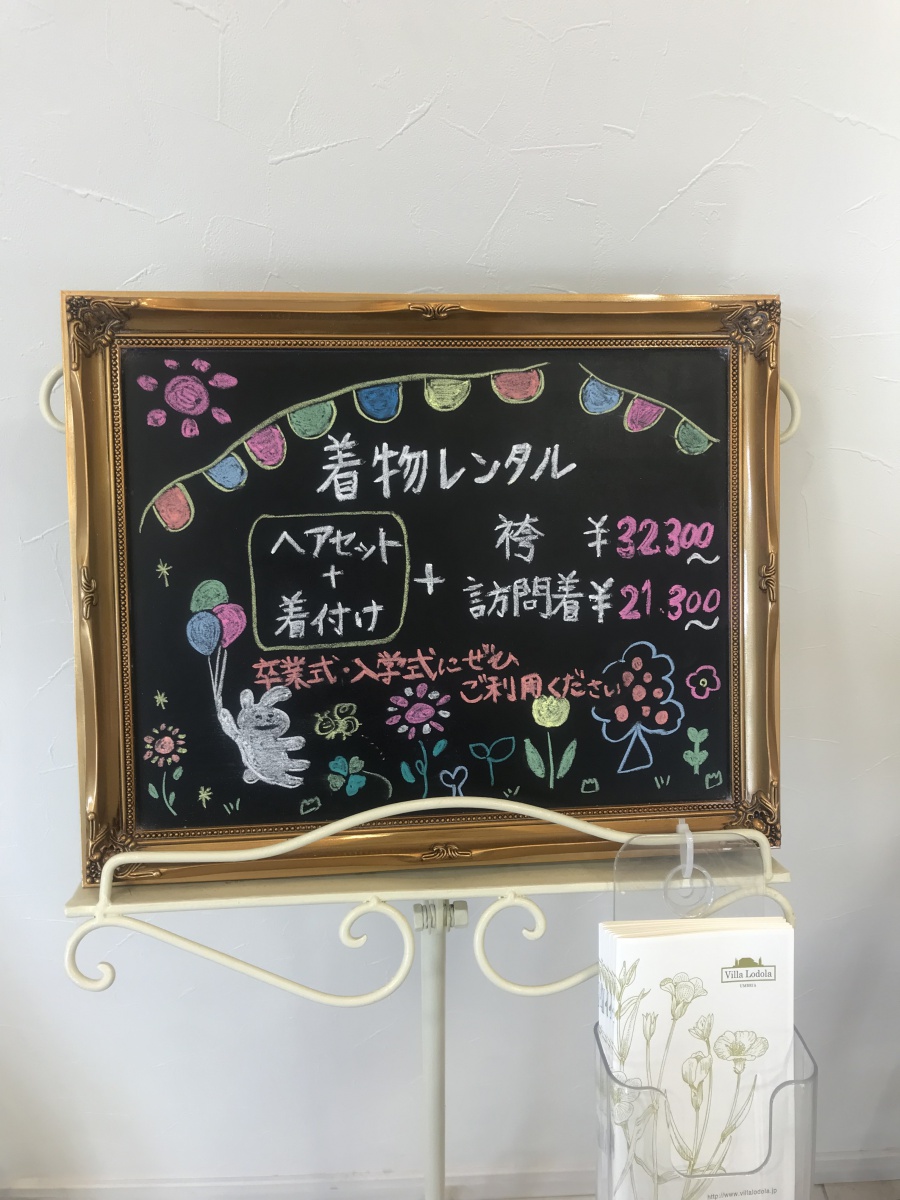 着物レンタル
ヘアセット
+
着付け
+
袴 ¥32.300~
訪問着¥21.300~
卒業式・入学式にぜひ
ご利用ください
Villa Lodola
http://www.villalodola.jp